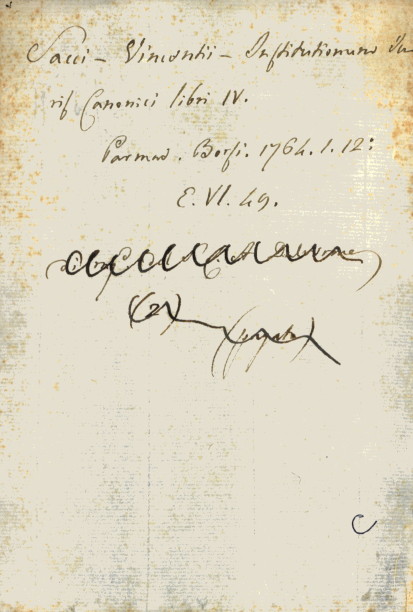 Sacci - Vincentii - Institutionum Ju
ris Canonici libri IV.
Parmae. Borsi. 1764. 1. 12:
E. VI. 49.
(2)
C